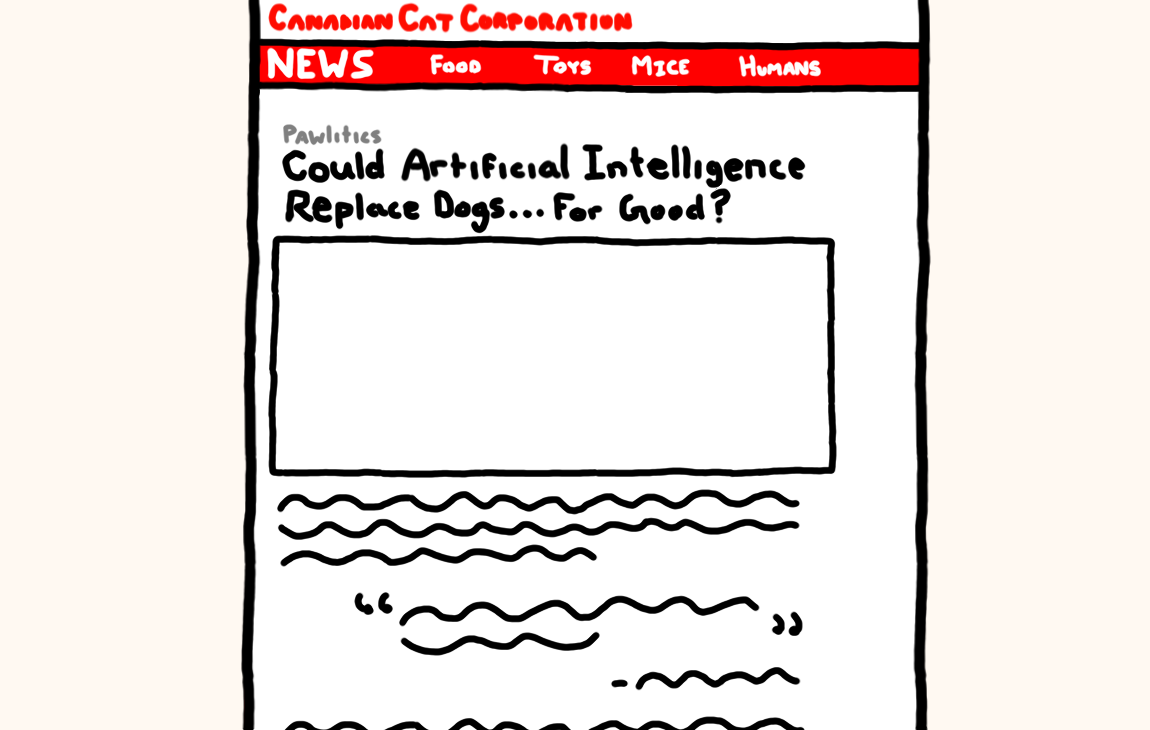 Canadian Cat Corporation
NEWS Food Toys Mice Humans
Pawlitics
Could Artificial Intelligence
Replace Dogs... For Good?
“ ”
-